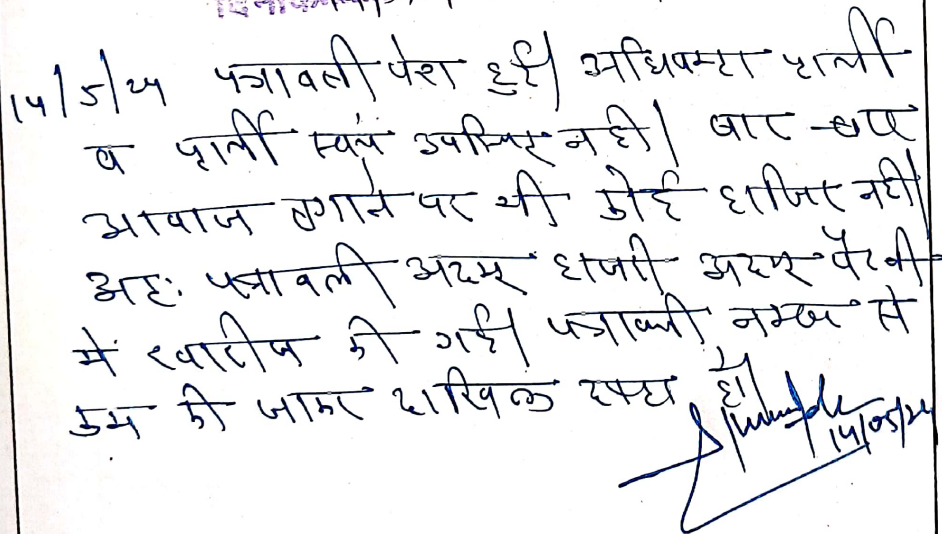 14/5/24 पत्रावली पेश हुई। अधिवक्ता प्रार्थी
व प्रार्थी स्वयं उपस्थित नहीं। बार-बार
आवाज लगाने पर भी कोई हाजिर नहीं।
अतः पत्रावली अदम हाजरी अदम पैरवी
में खारीज की गई। पत्रावली नम्बर से
कम की जाकर दाखिल दफ्तर हो।
14/05/24